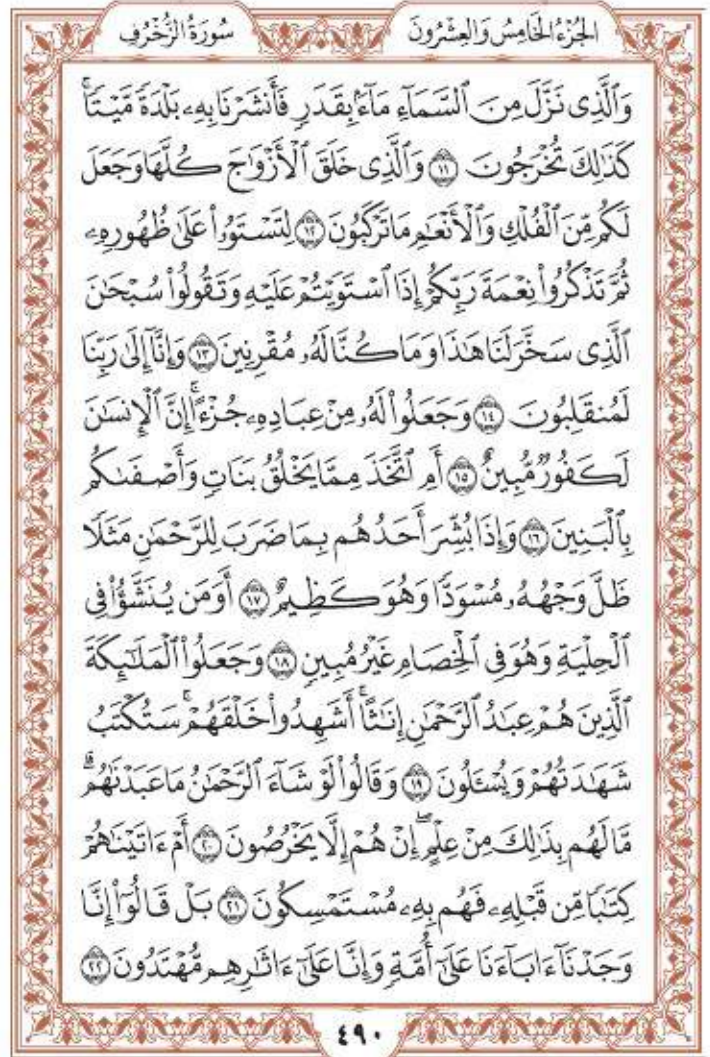 الجُزْءُ الخَامِسُ وَالعِشْرُونَ سُورَةُ الزُّخْرُفِ
وَٱلَّذِى نَزَّلَ مِنَ ٱلسَّمَآءِ مَآءَۢ بِقَدَرٖ فَأَنشَرْنَا بِهِۦ بَلْدَةٗ مَّيْتٗاۚ
كَذَٰلِكَ تُخْرَجُونَ ١١ وَٱلَّذِى خَلَقَ ٱلْأَزْوَٰجَ كُلَّهَا وَجَعَلَ
لَكُم مِّنَ ٱلْفُلْكِ وَٱلْأَنْعَٰمِ مَا تَرْكَبُونَ ١٢ لِتَسْتَوُۥا۟ عَلَىٰ ظُهُورِهِۦ
ثُمَّ تَذْكُرُوا۟ نِعْمَةَ رَبِّكُمْ إِذَا ٱسْتَوَيْتُمْ عَلَيْهِ وَتَقُولُوا۟ سُبْحَٰنَ
ٱلَّذِى سَخَّرَ لَنَا هَٰذَا وَمَا كُنَّا لَهُۥ مُقْرِنِينَ ١٣ وَإِنَّآ إِلَىٰ رَبِّنَا
لَمُنقَلِبُونَ ١٤ وَجَعَلُوا۟ لَهُۥ مِنْ عِبَادِهِۦ جُزْءًاۚ إِنَّ ٱلْإِنسَٰنَ
لَكَفُورٞ مُّبِينٌ ١٥ أَمِ ٱتَّخَذَ مِمَّا يَخْلُقُ بَنَاتٖ وَأَصْفَىٰكُم
بِٱلْبَنِينَ ١٦ وَإِذَا بُشِّرَ أَحَدُهُم بِمَا ضَرَبَ لِلرَّحْمَٰنِ مَثَلٗا
ظَلَّ وَجْهُهُۥ مُسْوَدّٗا وَهُوَ كَظِيمٌ ١٧ أَوَمَن يُنَشَّؤُا۟ فِى
ٱلْحِلْيَةِ وَهُوَ فِى ٱلْخِصَامِ غَيْرُ مُبِينٖ ١٨ وَجَعَلُوا۟ ٱلْمَلَٰٓئِكَةَ
ٱلَّذِينَ هُمْ عِبَٰدُ ٱلرَّحْمَٰنِ إِنَٰثًاۚ أَشَهِدُوا۟ خَلْقَهُمْۚ سَتُكْتَبُ
شَهَٰدَتُهُمْ وَيُسْـَٔلُونَ ١٩ وَقَالُوا۟ لَوْ شَآءَ ٱلرَّحْمَٰنُ مَا عَبَدْنَٰهُمۗ
مَّا لَهُم بِذَٰلِكَ مِنْ عِلْمٍۖ إِنْ هُمْ إِلَّا يَخْرُصُونَ ٢٠ أَمْ ءَاتَيْنَٰهُمْ
كِتَٰبٗا مِّن قَبْلِهِۦ فَهُم بِهِۦ مُسْتَمْسِكُونَ ٢١ بَلْ قَالُوٓا۟ إِنَّا
وَجَدْنَآ ءَابَآءَنَا عَلَىٰٓ أُمَّةٖ وَإِنَّا عَلَىٰٓ ءَاثَٰرِهِم مُّهْتَدُونَ ٢٢
٤٩٠